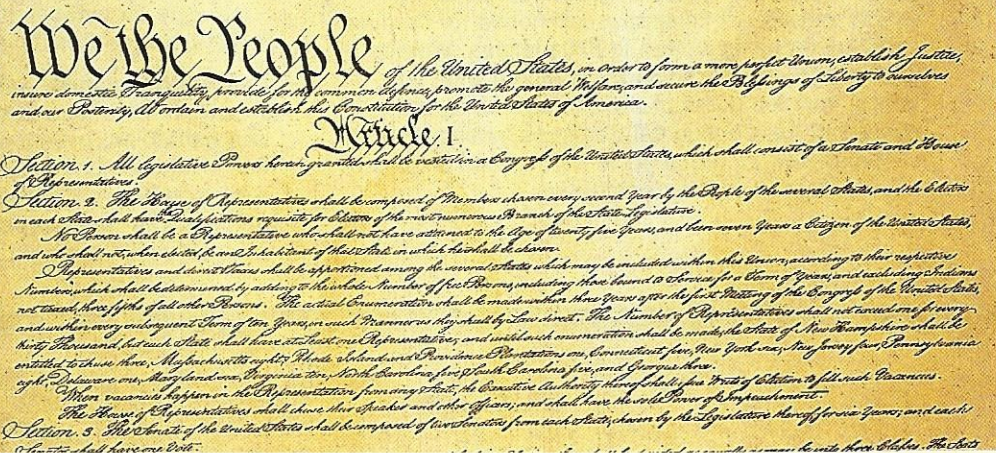 We the People of the United States, in order to form a more perfect Union, establish Justice,
insure domestic Tranquility, provide for the common defence, promote the general Welfare, and secure the Blessings of Liberty to ourselves
and our Posterity, do ordain and establish this Constitution for the United States of America.
Article I.
Section. 1. All legislative Powers herein granted shall be vested in a Congress of the United States, which shall consist of a Senate and House
of Representatives.
Section. 2. The House of Representatives shall be composed of Members chosen every second Year by the People of the several States, and the Electors
in each State shall have Qualifications requisite for Electors of the most numerous Branch of the State Legislature.
No Person shall be a Representative who shall not have attained to the Age of twenty five Years, and been seven Years a Citizen of the United States,
and who shall not, when elected, be an Inhabitant of that State in which he shall be chosen.
Representatives and direct Taxes shall be apportioned among the several States which may be included within this Union, according to their respective
Numbers, which shall be determined by adding to the whole Number of free Persons, including those bound to Service for a Term of Years, and excluding Indians
not taxed, three fifths of all other Persons. The actual Enumeration shall be made within three Years after the first Meeting of the Congress of the United States,
and within every subsequent Term of ten Years, in such Manner as they shall by Law direct. The Number of Representatives shall not exceed one for every
thirty Thousand, but each State shall have at least one Representative; and until such enumeration shall be made, the State of New Hampshire shall be
entitled to chuse three, Massachusetts eight, Rhode Island and Providence Plantations one, Connecticut five, New York six, New Jersey four, Pennsylvania
eight, Delaware one, Maryland six, Virginia ten, North Carolina five, South Carolina five, and Georgia three.
When vacancies happen in the Representation from any State, the Executive Authority thereof shall issue Writs of Election to fill such Vacancies.
The House of Representatives shall chuse their Speaker and other Officers; and shall have the sole Power of Impeachment.
Section. 3. The Senate of the United States shall be composed of two Senators from each State, chosen by the Legislature thereof, for six Years; and each
Senator shall have one Vote.
into three Classes. The Seats